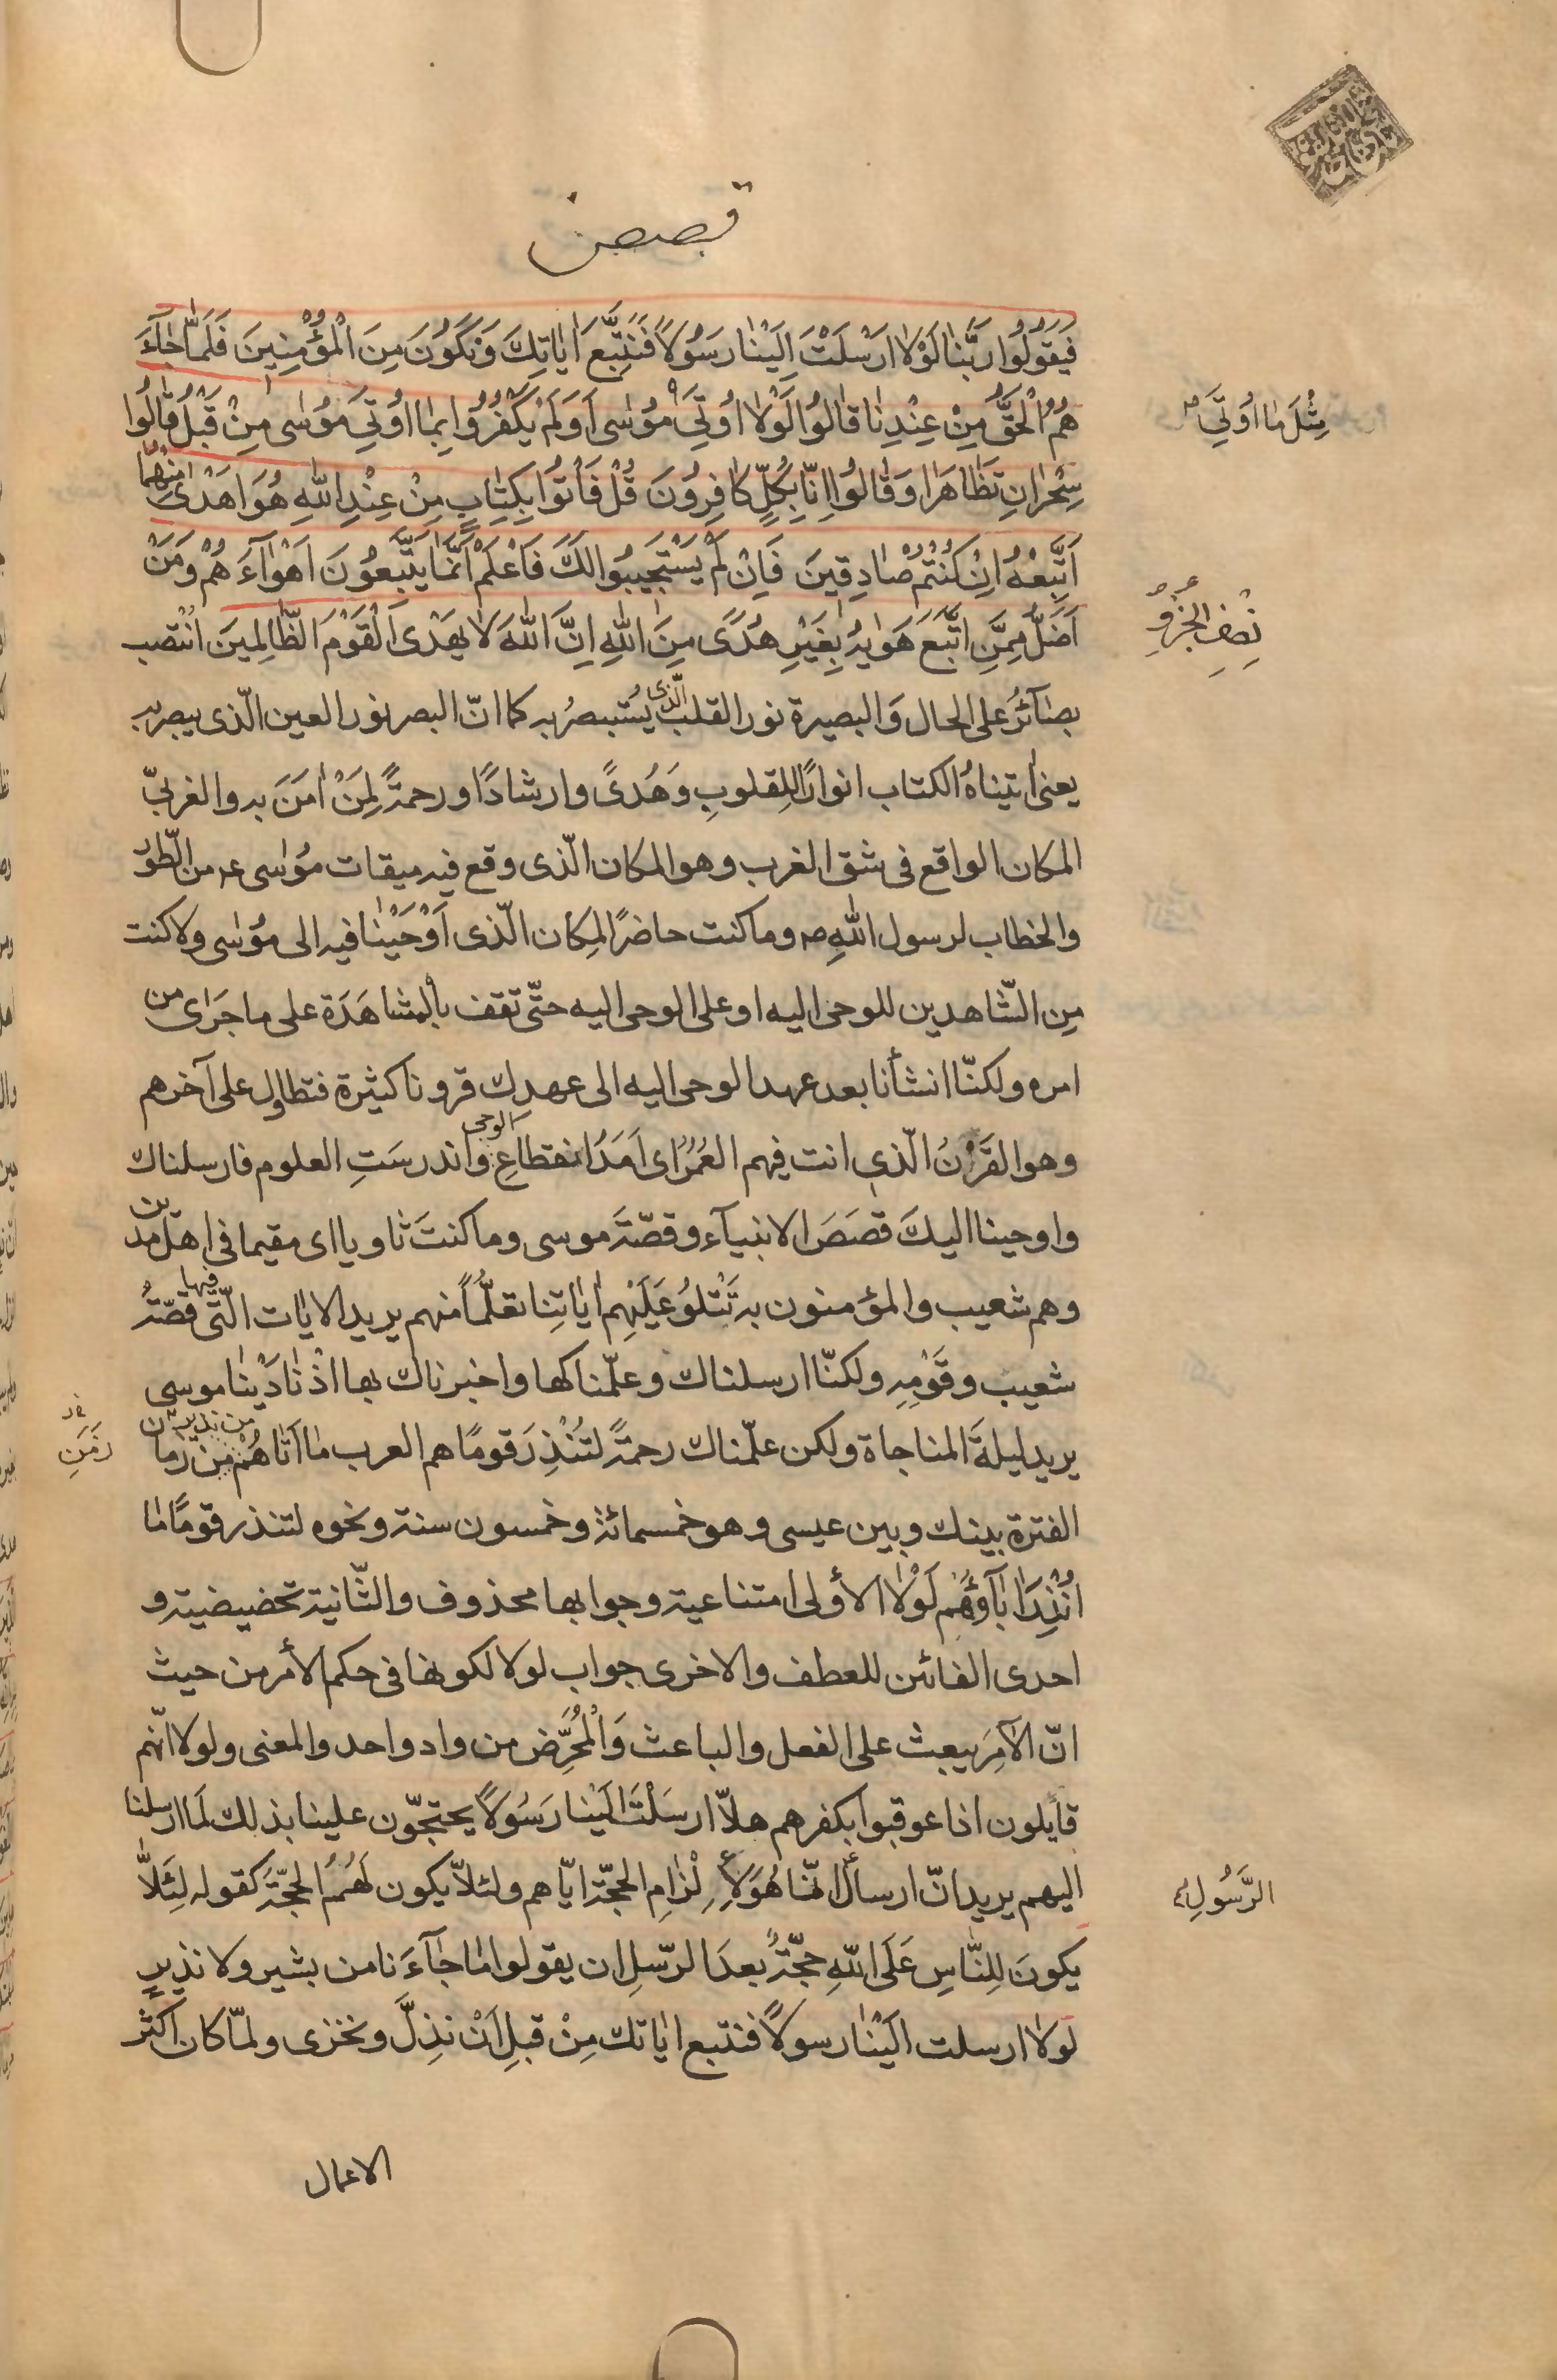 قصص
فَيَقُولُوا رَبَّنَا لَوْلَا اَرْسَلْتَ اِلَيْنَا رَسُولًا فَنَتَّبِعَ اٰيَاتِكَ وَنَكُونَ مِنَ الْمُؤْمِنِينَ فَلَمَّا جَآءَ
هُمُ الْحَقُّ مِنْ عِنْدِنَا قَالُوا لَوْلَا اُوتِيَ مُوسٰى اَوَلَمْ يَكْفُرُوا بِمَا اُوتِيَ مُوسٰى مِنْ قَبْلُ قَالُوا
مِثْلَ مَا اُوتِيَ
سِحْرَانِ تَظَاهَرَا وَقَالُوا اِنَّا بِكُلٍّ كَافِرُونَ قُلْ فَأْتُوا بِكِتَابٍ مِنْ عِنْدِ اللهِ هُوَ اَهْدٰى مِنْهُمَا
اَتَّبِعْهُ اِنْ كُنْتُمْ صَادِقِينَ فَاِنْ لَمْ يَسْتَجِيبُوا لَكَ فَاعْلَمْ اَنَّمَا يَتَّبِعُونَ اَهْوَآءَهُمْ وَمَنْ
نِصْفِ الجُزْوِ
اَضَلُّ مِمَّنِ اتَّبَعَ هَوٰيهُ بِغَيْرِ هُدًى مِنَ اللهِ اِنَّ اللهَ لَا يَهْدِى الْقَوْمَ الظَّالِمِينَ انْتصب
بصَآئرُ على الحال وَالبصيرة نور القلب الّذى يُستبصرُ به كما انّ البصر نور العين الّذى يبصر به
يعنى اٰتيناهُ الكتاب انوارًا لِلقلوبِ وَهُدىً وارشادًا ورحمةً لِمَنْ اٰمَنَ به والغربىّ
المكان الواقع فى شق الغرب وهو المكان الّذى وقع فيه ميقات مُوسٰى ع من الطّور
والخطاب لرسول اللهِ ص وما كنت حاضرًا لمكان الّذى اَوْحَيْنَا فيه الى مُوسٰى ولا كنت
مِن الشّاهدين للوحى اليه او على الوحى اليه حتّى تقف بالمشاهَدَة على ما جَرٰى من
امره ولكنّا انشأنا بعد عهد الوحى اليه الى عهدك قرونا كثيرة فتطاول على آخرهم
وهو القَرْنُ الّذى انت فيهم العُمُرُ اى اَمَدُ انقطاعِ الوحى واندرسَتِ العلوم فارسلناك
واوحينا اليكَ قصَصَ الانبيآء وقصّةَ موسى وما كنتَ ثاويا اى مقيما فى اهل مدين
وهم شعيب والمؤمنون به تَتْلُو عَلَيْهِم اٰيٰاتِنا تعلّمًا منهم يريد الايات الّتى فيها قصّةُ
شعيب وقَوْمِهِ ولكنّا ارسلناك وعلّمناكها واخبرناك بها اذْ نَادَيْنَا موسى
يريد ليلةَ المناجاة ولكن علّمناك رحمةً لتُنْذِرَ قومًا هم العرب مَا اَتٰاهُمْ من نذير من زمان
زَمَنِ
الفترة بينك وبين عيسى وهو خمسمائة وخمسون سنة ونحوه لتنذر قومًا مٰا
اُنْذِرَ اٰبَآؤُهُم لَوْلَا الأولى امتناعية وجوابها محذوف والثّانية تحضيضية و
احدى الفائين للعطف والاخرى جواب لولا لكونها فى حكم الأمر من حيث
انّ الاَمرَ يبعث على الفعل والباعث وَالْمُحَرِّض من واد واحد والمعنى ولولا انّهم
قايلون اذا عوقبوا بكفرهم هلاّ ارسَلْتَ اِلَيْنا رَسُولًا يحتجّون علينا بذلك لَما ارسلنا
اليهم يريد انّ ارسال انّما هُوَ لِاِلْزَامِ الحجّة ايّاهم ولئلاّ يكون لَهُمُ الحجّةُ كقوله لِئَلاّ
الرَّسُولِ
يكونَ لِلنّاسِ عَلَى اللّهِ حجّةٌ بعدَ الرّسلِ ان يقولوا مٰا جَآءَنا من بشير ولا نذيرٍ
لولا ارسلت اِلَيْنٰا رسولًا فنتبع اٰيٰاتك مِنْ قبلِ اَنْ نذِلَّ ونخزى ولمّا كان اكثر
الاعمال